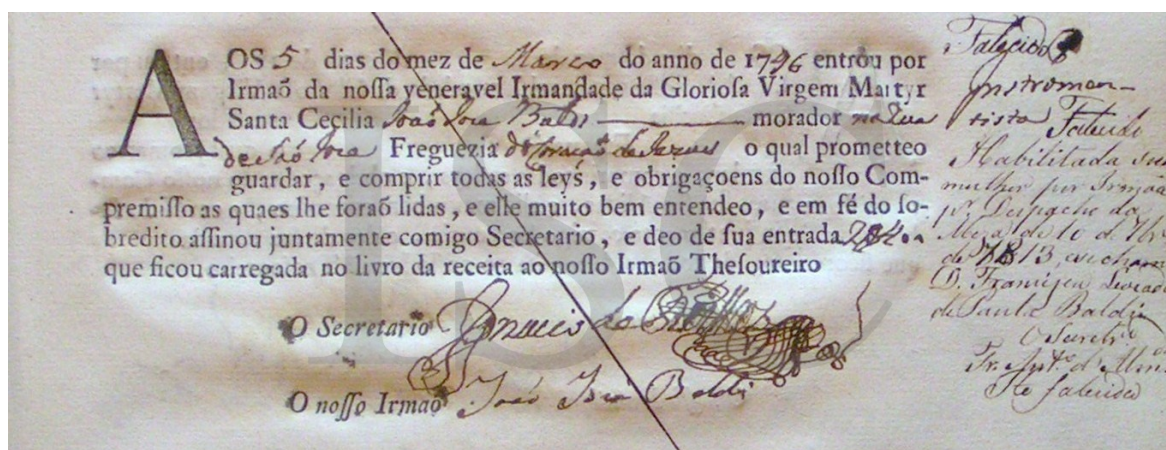 AOS 5 dias do mez de Março do anno de 1796 entrou por
Irmaõ da noſſa veneravel Irmandade da Glorioſa Virgem Martyr
Santa Cecilia João Joze Baldi morador na Rua
de São Joze Freguezia do Coração de Jezus o qual prometteo
guardar, e comprir todas as leys, e obrigaçoens do noſſo Com-
premiſſo as quaes lhe foraõ lidas, e elle muito bem entendeo, e em fé do ſo-
bredito aſſinou juntamente comigo Secretario, e deo de ſua entrada
que ficou carregada no livro da receita ao noſſo Irmaõ Theſoureiro
O Secretario Ignacio de
O noſſo Irmaõ João Joze Baldi
Falecido
Instromen-
tista Falecido
Habilitada sua
mulher por Irmãa
pr. Despacho da
Meza de 10 de
de 1813, e se chama
D. Francisca
de Paula Baldi
O Secretro
Fr. Anto. d'
He falecido
ISC